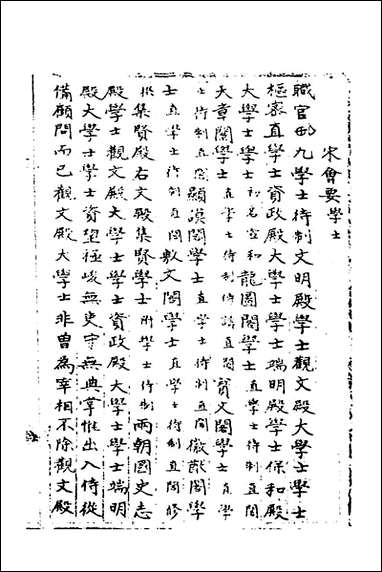 宋會要 學士
職官部 九學士待制文明殿學士觀文殿大學士學士
樞密直學士資政殿大學士學士端明殿學士保和殿
大學士學士 初名宣和 龍圖閣學士 直學士待制直閣
天章閣學士 直學士待制侍講直閣 寶文閣學士 直學
士待制直閣 顯謨閣學士 直學士待制直閣 徽猷閣學
士 直學士待制直閣 敷文閣學士 直學士待制直閣 修
撰集賢殿右文殿集賢學士 附學士待制 兩朝國史志
殿學士觀文殿大學士學士資政殿大學士學士端明
殿大學士學士資望極峻無吏守無典掌惟出入侍從
備顧問而已觀文殿大學士非曾為宰相不除觀文殿